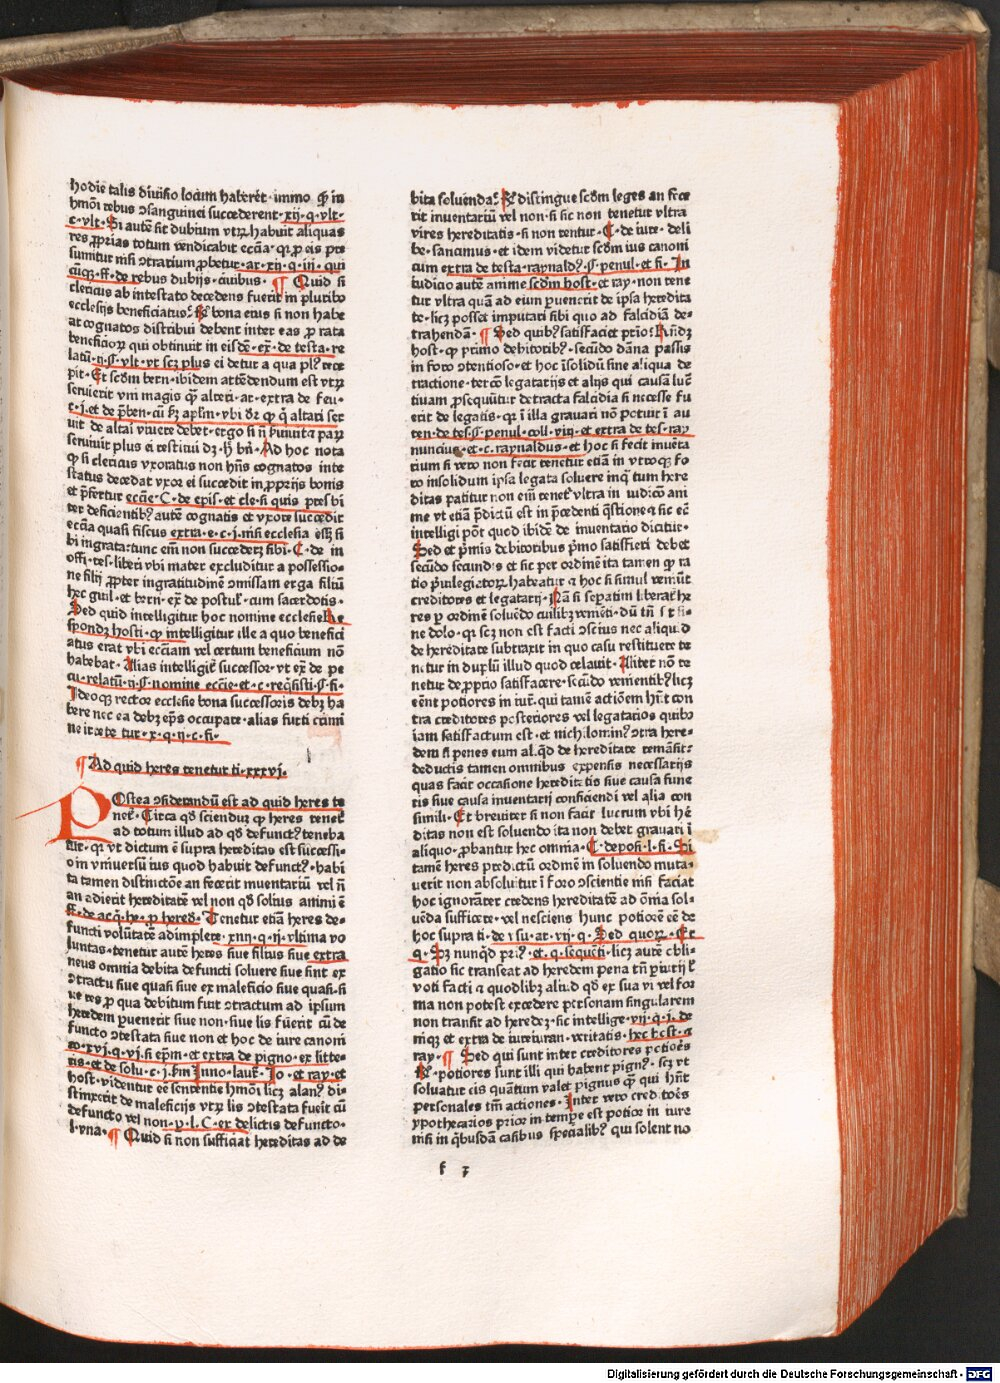 hodie talis diuisio locum haberet · immo ꝙ in
hmōi rebus ↄsanguinei succederent · xij · q · vlt ·
c · vlt · Si autē sit dubium vtꝝ habuit aliquas
res ꝓprias totum vendicabit ecc̄ia · qꝛ ꝓ eis pre
sumitur nisi ↄtrarium ꝓbetur · ar · xij · q · iij · qui
cūqꝫ · ff · de rebus dubijs · ciuibus · ¶ Quid si
clericus ab intestato decedens fuerit in pluribꝰ
ecclesijs beneficiatus? Rͦ bona eius si non habe
at cognatos distribui debent inter eas ꝓ rata
beneficioꝝ qui obtinuit in eisdē · ex̄ · de testa · re
latū · ij · § · vlt · vt scꝫ plus ei detur a qua plꝰ rece
pit · Et scd̄m bern · ibidem attēdendum est vtꝝ
seruierit vni magis ꝙ̄ alteri · ar · extra de feu ·
c · j · et de p̄ben · cū ẜm apl̄m · vbi dr̄ ꝙ q̇ altari ser
uit de altari viuere debet · ergo si n̄ seruiunt paꝝ
seruiuit plus ei restitui dꝫ · ẜm bn̄ · Ad hoc nota
ꝙ si clericus vxoratus non hn̄s cognatos inte
status decedat vxor ei succedit in ꝓprijs bonis
et p̄fertur ecc̄ie · C · de epis · et cle · si quis presbi
ter deficientibꝰ autē cognatis et vxore succedit
ecc̄ia quasi fiscus extra · e · c · j · nisi ecclesia eēt si
bi ingrata · tunc em̄ non succederꝫ sibi · C · de in
offi · tes · liberi vbi mater excluditur a possessio
ne filij ꝓpter ingratitudinē ↄmissam erga filiū
hec guil · et bern · ex̄ · de postul̄ · cum sacerdotis ·
Sed quid intelligitur hoc nomine ecclesie Re
spondꝫ hosti · ꝙ intelligitur ille a quo benefici
atus erat vbi ecc̄iam vel certum beneficium nō
habebat · Alias intelligit̄ successor · vt ex̄ · de pe
cu · relatū · ij · § · nomine ecc̄ie · et · c · req̇sisti · § · fi ·
Ideoqꝫ rector ecclesie bona successoris debꝫ ha
bere nec ea debꝫ ep̄s occupare · alias furti crimi
ne irretetur · x · q · ij · c · fi ·
¶ Ad quid heres tenetur ti · xxxvj ·
POstea ↄsiderandū est ad quid heres te
net̄ · Circa qd̄ sciendū ꝙ heres tenet̄
ad totum illud ad qd̄ defunctꝰ teneba
tur · qꝛ vt dictum ē supra hereditas est successi
o in vniuersū ius quod habuit defunctꝰ · habi
ta tamen distinctōe an fecerit inuentariū vel n̄
an adierit hereditatē vel non qd̄ solius animi ē
ff · de acq̇ · he · ꝓ hered̄ · Tenetur etiā heres de
functi volūtatē adimplere · xiij · q · ij · vltima vo
luntas · tenetur autē heres siue filius siue extra
neus omnia debita defuncti soluere siue sint ex
ↄtractu siue quasi siue ex maleficio siue quasi · si
ue res ꝓ qua debitum fuit ↄtractum ad ipsum
heredem ꝑuenerit siue non · siue lis fuerit cū de
functo ↄtestata siue non et hoc de iure canoni
co · xvj · q · vj · si ep̄m · et extra de pigno · ex litte
ris · et de solu · c · j · ẜm Inno · laur̄ · Jo · et ray · et
host · videntur eē sententie hmōi licꝫ alanꝰ di
stinxerit de maleficijs vtꝝ lis ↄtestata fuerit cū
defuncto vel non · ꝑ · l · C · ex delictis defuncto ·
l · vna · ¶ Quid si non sufficiat hereditas ad de
bita soluenda? Rͦ distingue scd̄m leges an fece
rit inuentariū vel non · si sic non tenetur vltra
vires hereditatis · si non tentur · C · de iure · deli
be · sancimus · et idem videtur scd̄m ius canoni
cum extra de testa · raynaldꝰ · § · penul · et fi · In
iudicio autē anime scd̄m host · et ray · non tene
tur vltra quā ad eum ꝑuenerit de ipsa heredita
te · licꝫ posset imputari sibi quo ad falcidiā de
trahendā · ¶ Sed quibꝰ satisfaciet prio? Rn̄dꝫ
host · ꝙ primo debitoribꝰ · secūdo dāna passis
in foro ↄtentioso · et hoc īsolidū sine aliqua de
tractione · tercō legatarijs et alijs qui causā luc̄
tiuam ꝓsequūtur detracta falcidia si necesse fu
erit de legatis · qꝛ ī illa grauari nō potuit ī au
ten · de tes · § · penul · coll · viij · et extra de tes · ray
nuncius · et · c · raynaldus · et hoc si fecit inuēta
rium si vero non fecit tenetur etiā in vtroqꝫ fo
ro insolidum ipsa legata soluere inqͣ̄tum here
ditas patitur non eim̄ tenet̄ vltra in iudicio ani
me vt etiā p̄dictū est in p̄cedenti q̄stione ⁊ sic eē
intelligi pōt quod ibidē de inuentario dicitur ·
Sed et p̄mis debitoribus p̄mo satisfieri debet
secūdo secundis et sic per ordinē ita tamen ꝙ ra
tio p̄uilegiatoꝝ habeatur ⁊ hoc si simul veniūt
creditores et legatarij · Nā si sepatim liberat̄ he
res ꝑ ordinē soluēdo cuilibꝫ veniēti · dū tn̄ sit si
ne dolo · qꝛ scꝫ non est facti ↄscius nec aliquid
de hereditate subtraxit in quo casu restituere te
netur in duplū illud quod celauit · Aliter nō te
netur de ꝓprio satisfacere · secūdo venientibꝰ licꝫ
eēnt potiores in iur̄ · qui tamē actiōem hn̄t con
tra creditores posteriores vel legatarios quibꝰ
iam satisfactum est · et nichilomin? ↄtra here
dem si penes eum aliqd̄ de hereditate remāsit ·
deductis tamen omnibus expensis necessarijs
quas facit occasione hereditatis siue causa fune
ris siue causa inuentarij conficiendi vel alia con
simili · Et breuiter si non facit lucrum vbi hē
ditas non est soluendo ita non debet grauari ī
aliquo · ꝓbantur hec omnia · C · deposi · l · fi · Si
tamē heres predictū ordinem in soluendo muta
uerit non absoluitur ī foro ↄscientie nisi faciat
hoc ignoranter credens hereditatē ad om̄ia sol
uēda sufficere · vel nesciens hunc potiorē eē de
hoc supra ti · de vsu · ar · vij · q · Sed quoꝝ · Et
q · Sꝫ nunqd̄ pzi? · et · q · sequēti · licꝫ autē obli
gatio sic transeat ad heredem pena tn̄ ꝑiurij ł
voti facti ⁊ quodlibꝫ aliud qd̄ ex sua vi vel for
ma non potest excedere personam singularem
non transit ad heredeꝫ · sic intellige · vij · q · j · de
niqꝫ et extra de iureiuran · veritatis · hec host · ⁊
ray · ¶ Sed qui sunt inter creditores pociores
Rͦ · potiores sunt illi qui habent pignꝰ · scꝫ vt
soluatur eis quantum valet pignus ꝙ̄ qui hn̄t
personales tm̄ actiones · Inter vero creditōes
ypothecarios prior in tempore est potior in iure
nisi in qͥbusdā casibus specialibꝰ qui solent no
f 3
Digitalisierung gefördert durch die Deutsche Forschungsgemeinschaft - DFG